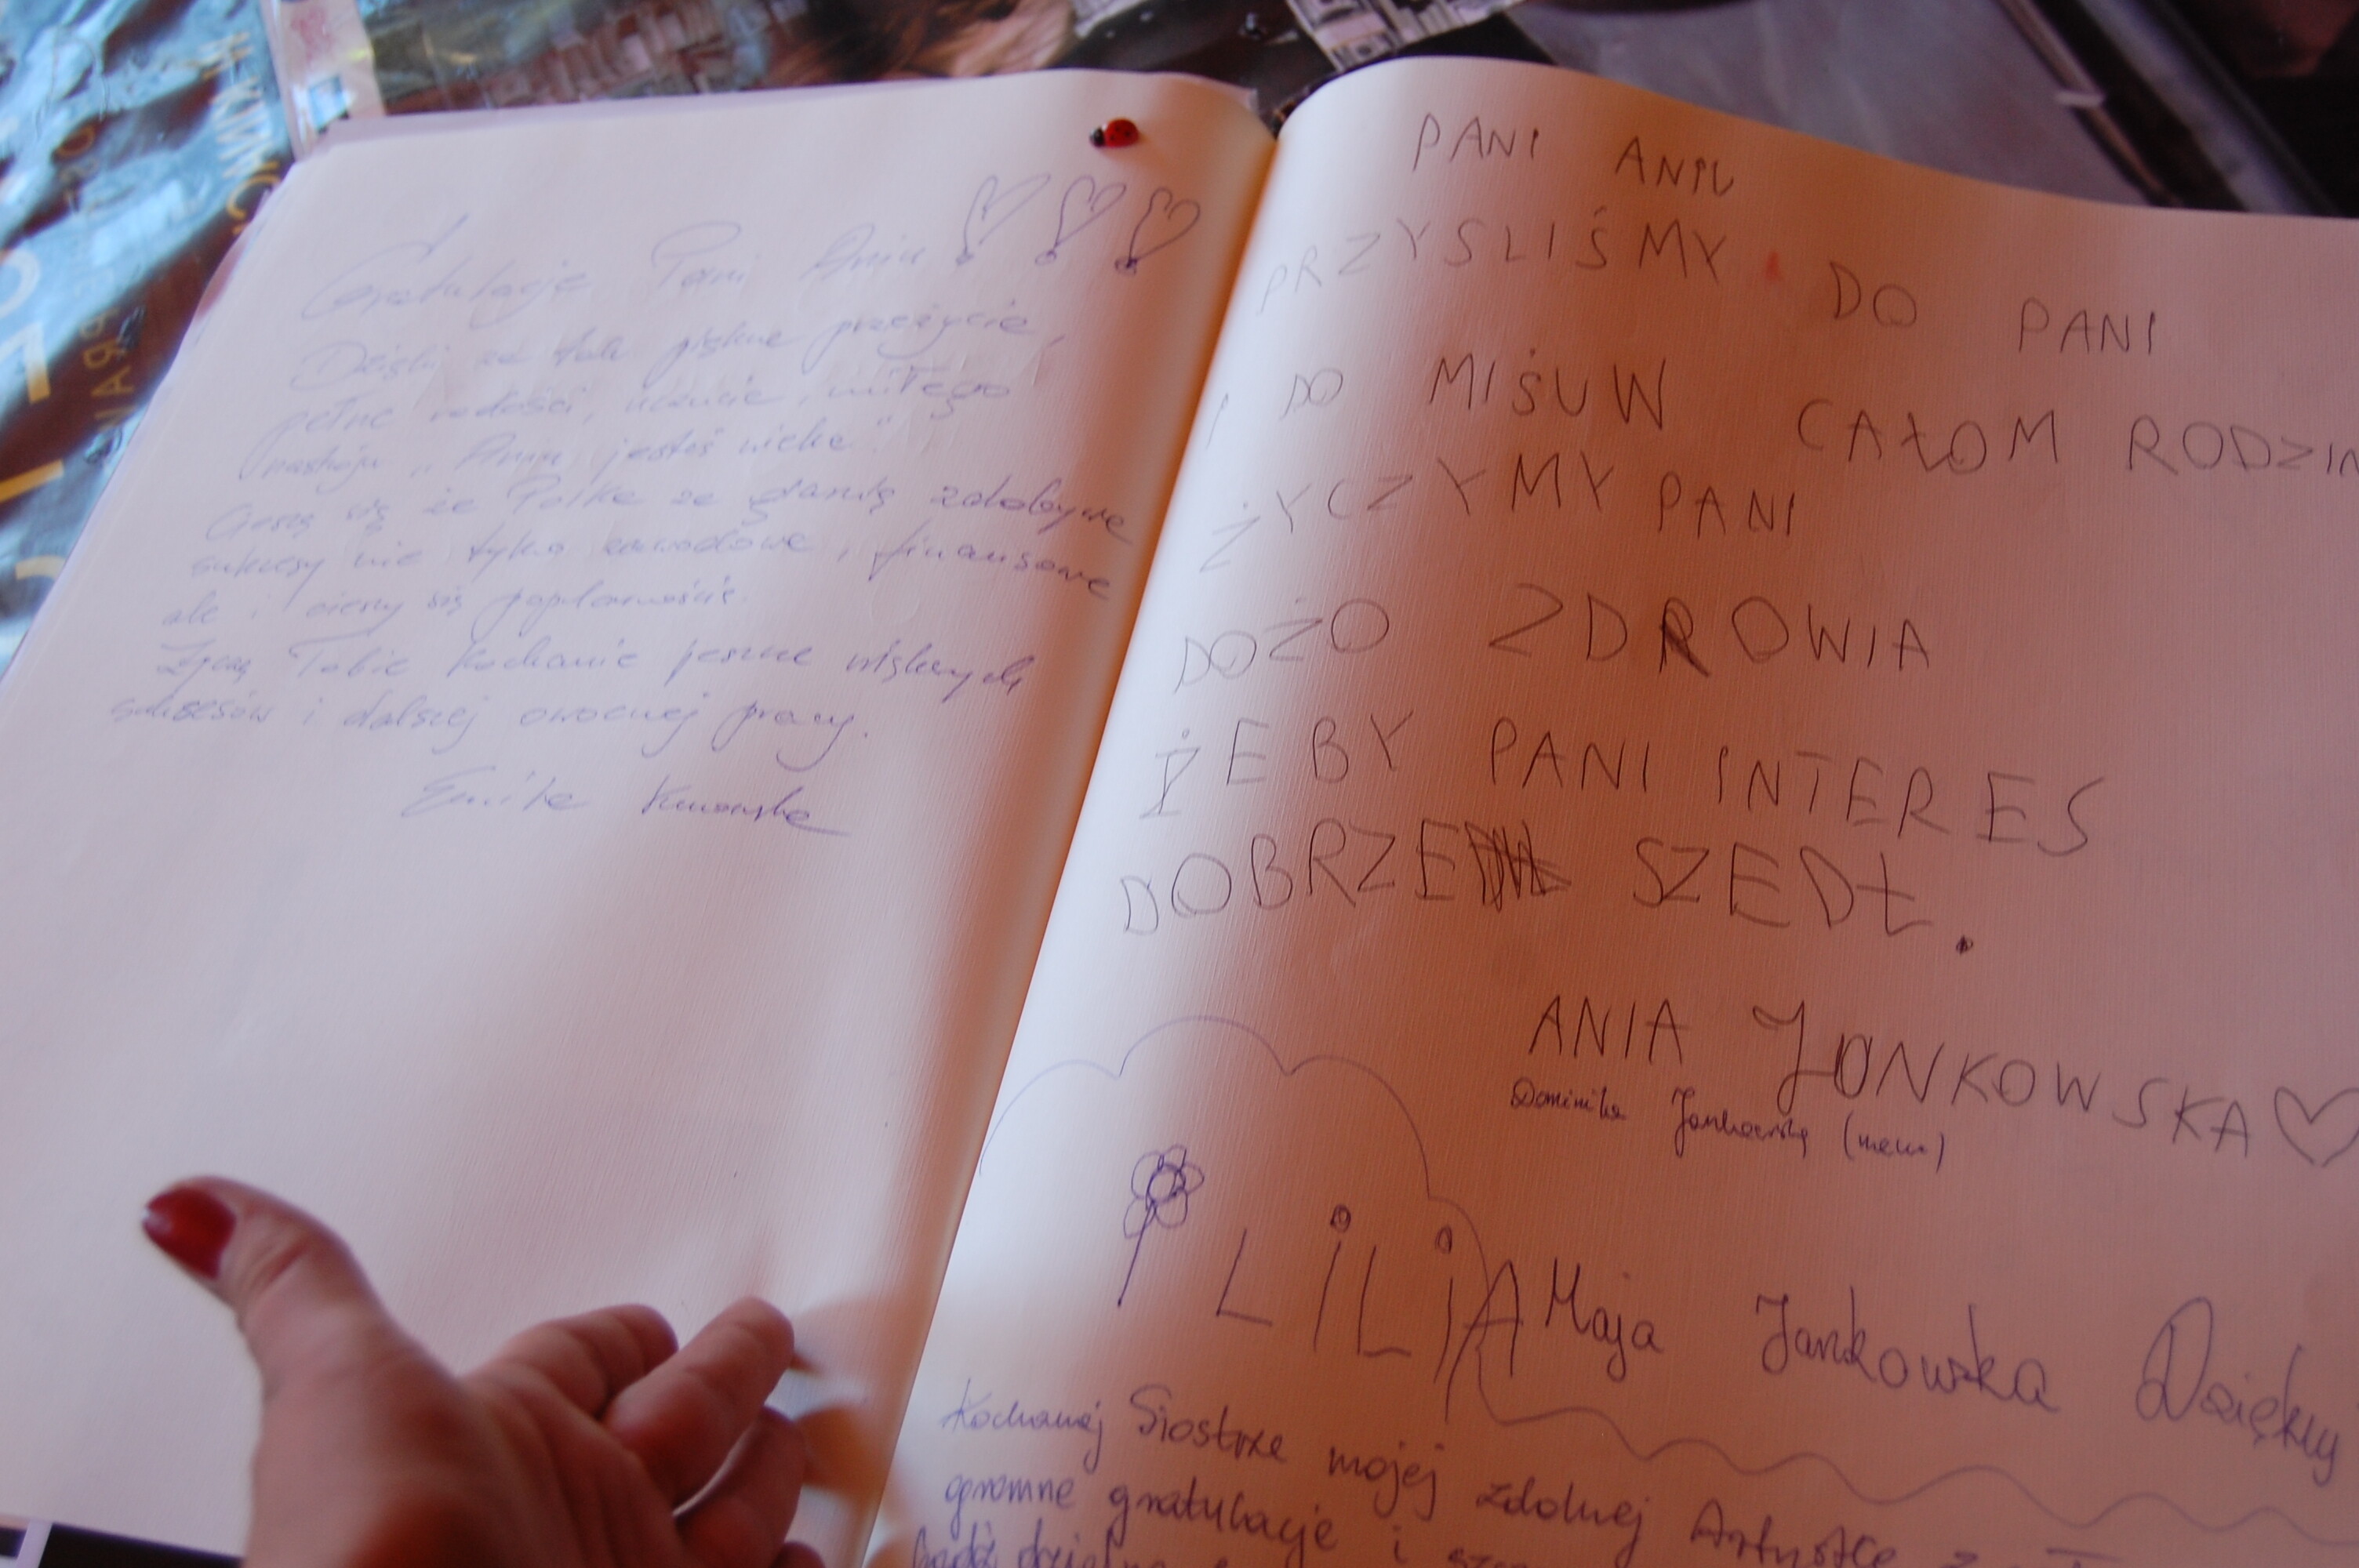 Gratulacje Pani Aniu
Dzięki za tak piękne przeżycie,
pełne radości, uczucie, miłego
nastroju „Aniu jesteś wielka"
Cieszę się że Polka ze zdobywa
sukcesy nie tylko zawodowe, finansowe
ale i cieszy się popularnością.
Życzę Tobie Kochanie jeszcze większych
sukcesów i dalszej owocnej pracy.
PANI ANIU
PRZYSLIŚMY DO PANI
I DO MIŚUW CAŁOM RODZIN
ŻYCZYMY PANI
DOŻO ZDROWIA
ŻEBY PANI INTERES
DOBRZE SZEDŁ.
ANIA JONKOWSKA
Dominika Jankowska (mama)
LiLiA Maja Jankowska Dzięku
Kochanej Siostrze mojej zdolnej Artystce
ogromne gratulacje i